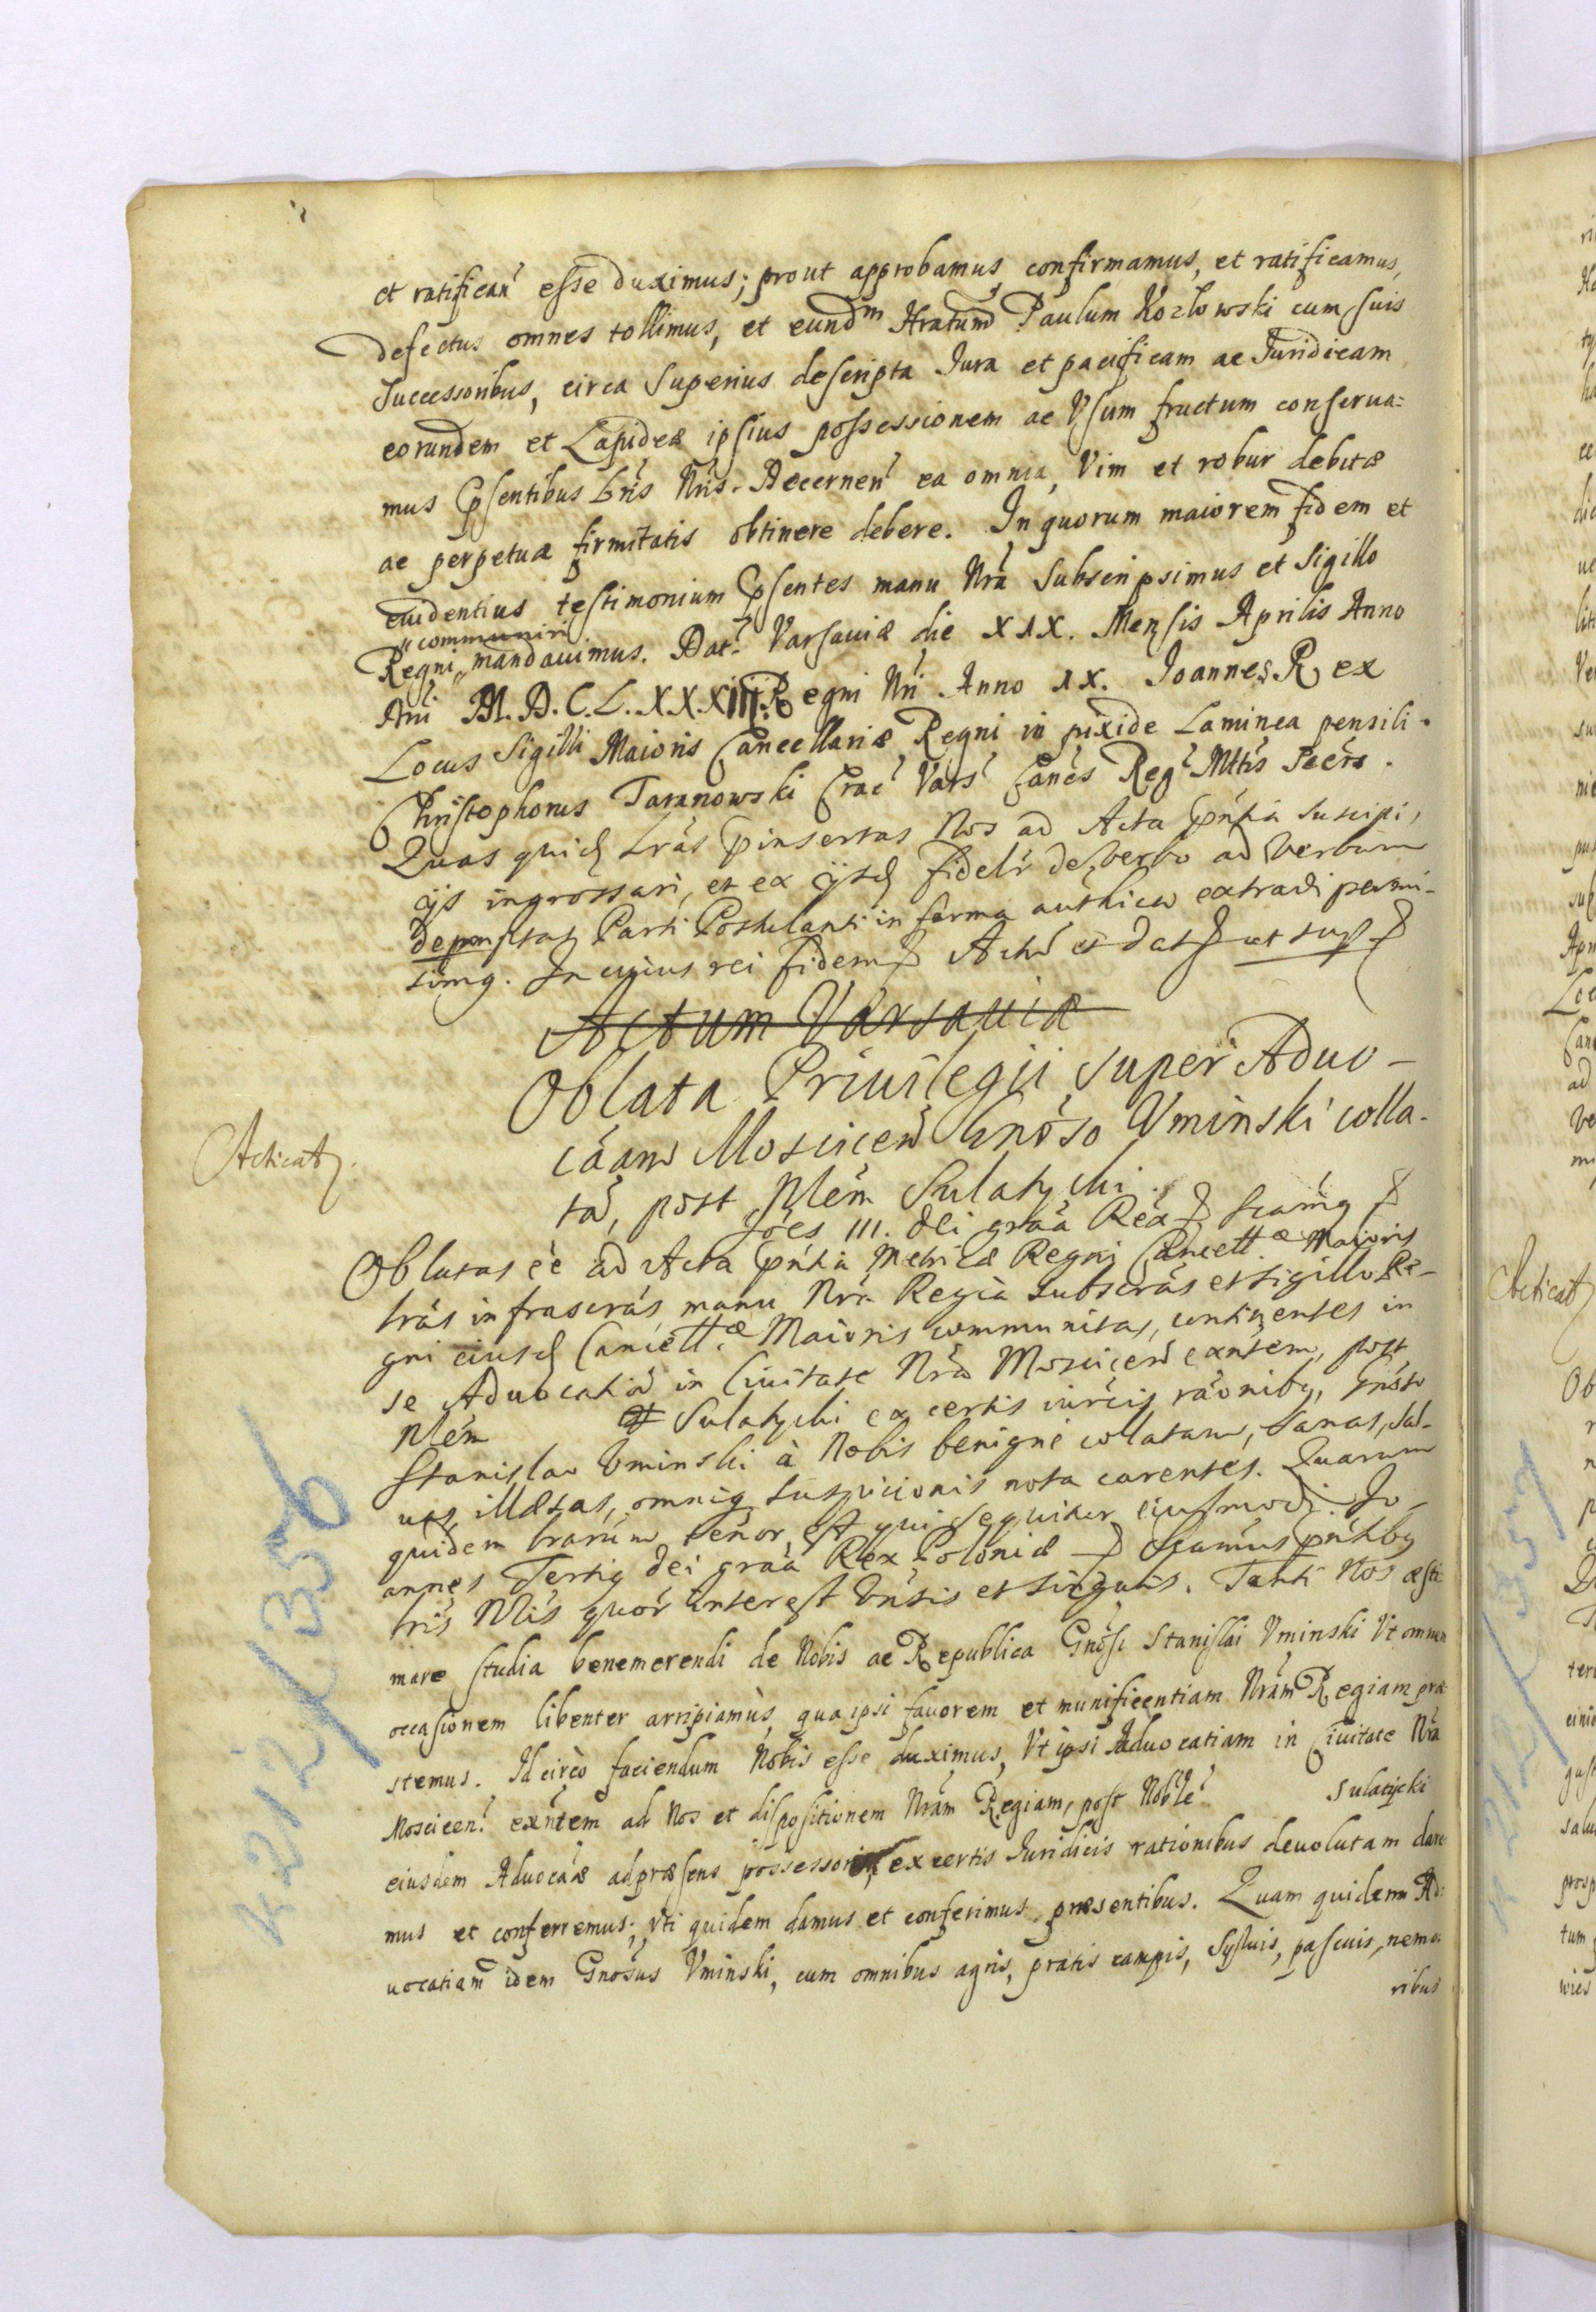 et ratifican̄ esse duximus; prout approbamus confirmamus, et ratificamus,
defectus omnes tollimus, et eundm Hratum Paulum Kozłowski cum suis
Successoribus, circa Superius descripta Jura et pacificam ac Juridicam
eorundem et Lapideæ ipsius possessionem ac Vsum fructum conserua=
mus Pnsentibus Lrīs Nrīs. Decernen̄ ea omnia, Vim et robur debitæ
ac perpetuæ firmitatis obtinere debere. In quorum maiorem fidem et
euidentius testimonium Psentes manu Nrā Subscripsimus et Sigillo
communiri
Regni mandauimus. Dat. Varsauiæ die XIX. Mensis Aprilis Anno
Dnī M.D.C.L.XXXIII. Regni Nrī Anno IX. Joannes Rex
Locus Sigilli Maioris Cancellariæ Regni in pixide Laminea pensili.
Christophorus Taranowski Crac̄ Vars̄ Can̄cs Reḡ Mttis Secr̄s.
Quas quid lrās Pinsertas Nos ad Acta Pn̄tia suscipi,
ijs ingrossari, et ex ijsd fidelr̄ de verbo ad verbum
depromptas Parti Postulanti in forma authica extradi permi-
simg. In cuius rei fidem Actū et dat ut sup
Actum Varsauiæ
Oblata Priuilegii super Aduo-
cāam Moscicen̄ Gnoso Vminski colla-
tā, post Nlem Sulatycki.
Acticat
Joēs III. dei grāa Rex Scāmg
Oblatas eē ad Acta Pn̄tia Metricæ Regni Cancell.æ Maioris
lrās infrascrās, manu Nrā Regia subscrās et sigillo Re-
gni eiusd Cancell.æ Maioris communitas, continentes in
se Aduocatiā in Ciuitate Nrā Moscicen̄ exn̄tem, post
Nlem Sulatycki ex certis iurcis rāonibg, Gnoso
Stanislao Vminski à Nobis benigne collatam, sanas, sal-
uas, illæsas, omnig suspicionis nota carentes. Quarum
quidem lrarum tenor est qui sequitur eiusmodi. Jo-
annes Tertig dei grāa Rex Poloniæ Scāmus pn̄tibg
lrīs Nrīs quor̄ interest Vn̄sis et singulis. Tanti Nos æsti
mare studia benemerendi de Nobis ac Republica Gnosi Stanislai Vminski Vt omnem
occasionem libenter arripiamùs, qua ipsi fauorem et munificentiam Nrām Regiam præ
stemus. Idcircò faciendum Nobis esse duximus, Vt ipsi Aduocatiam in Ciuitate Nrā
Moscicen̄ exn̄tem ad Nos et dispositionem Nrām Regiam, post Noble Sulatÿcki
eiusdem Aduocāæ ad præsens possessorem, ex certis Juridicis rationibus deuolutam dare
mus et conferremus; vti quidem damus et conferimus præsentibus. Quam quidem Ad:
uocatiam idem Gnosus Vminski, cum omnibus agris, pratis campis, Syluis, pascuis, nemo
ribus
k 212/356